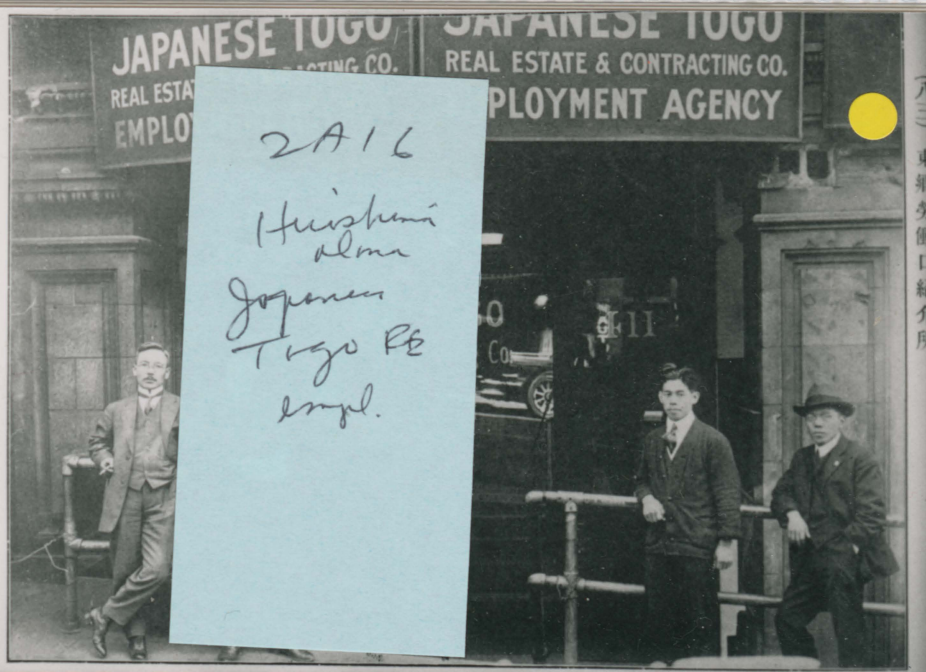 JAPANESE TOGO
REAL ESTA ACTING CO.
EMPLO
JAPANESE TOGO
REAL ESTATE & CONTRACTING CO.
PLOYMENT AGENCY
2A16
Hiroshima
alma
Japanese
Togo RE
empl.
GO
Co
411
(八三)
東郷労働口紹介所